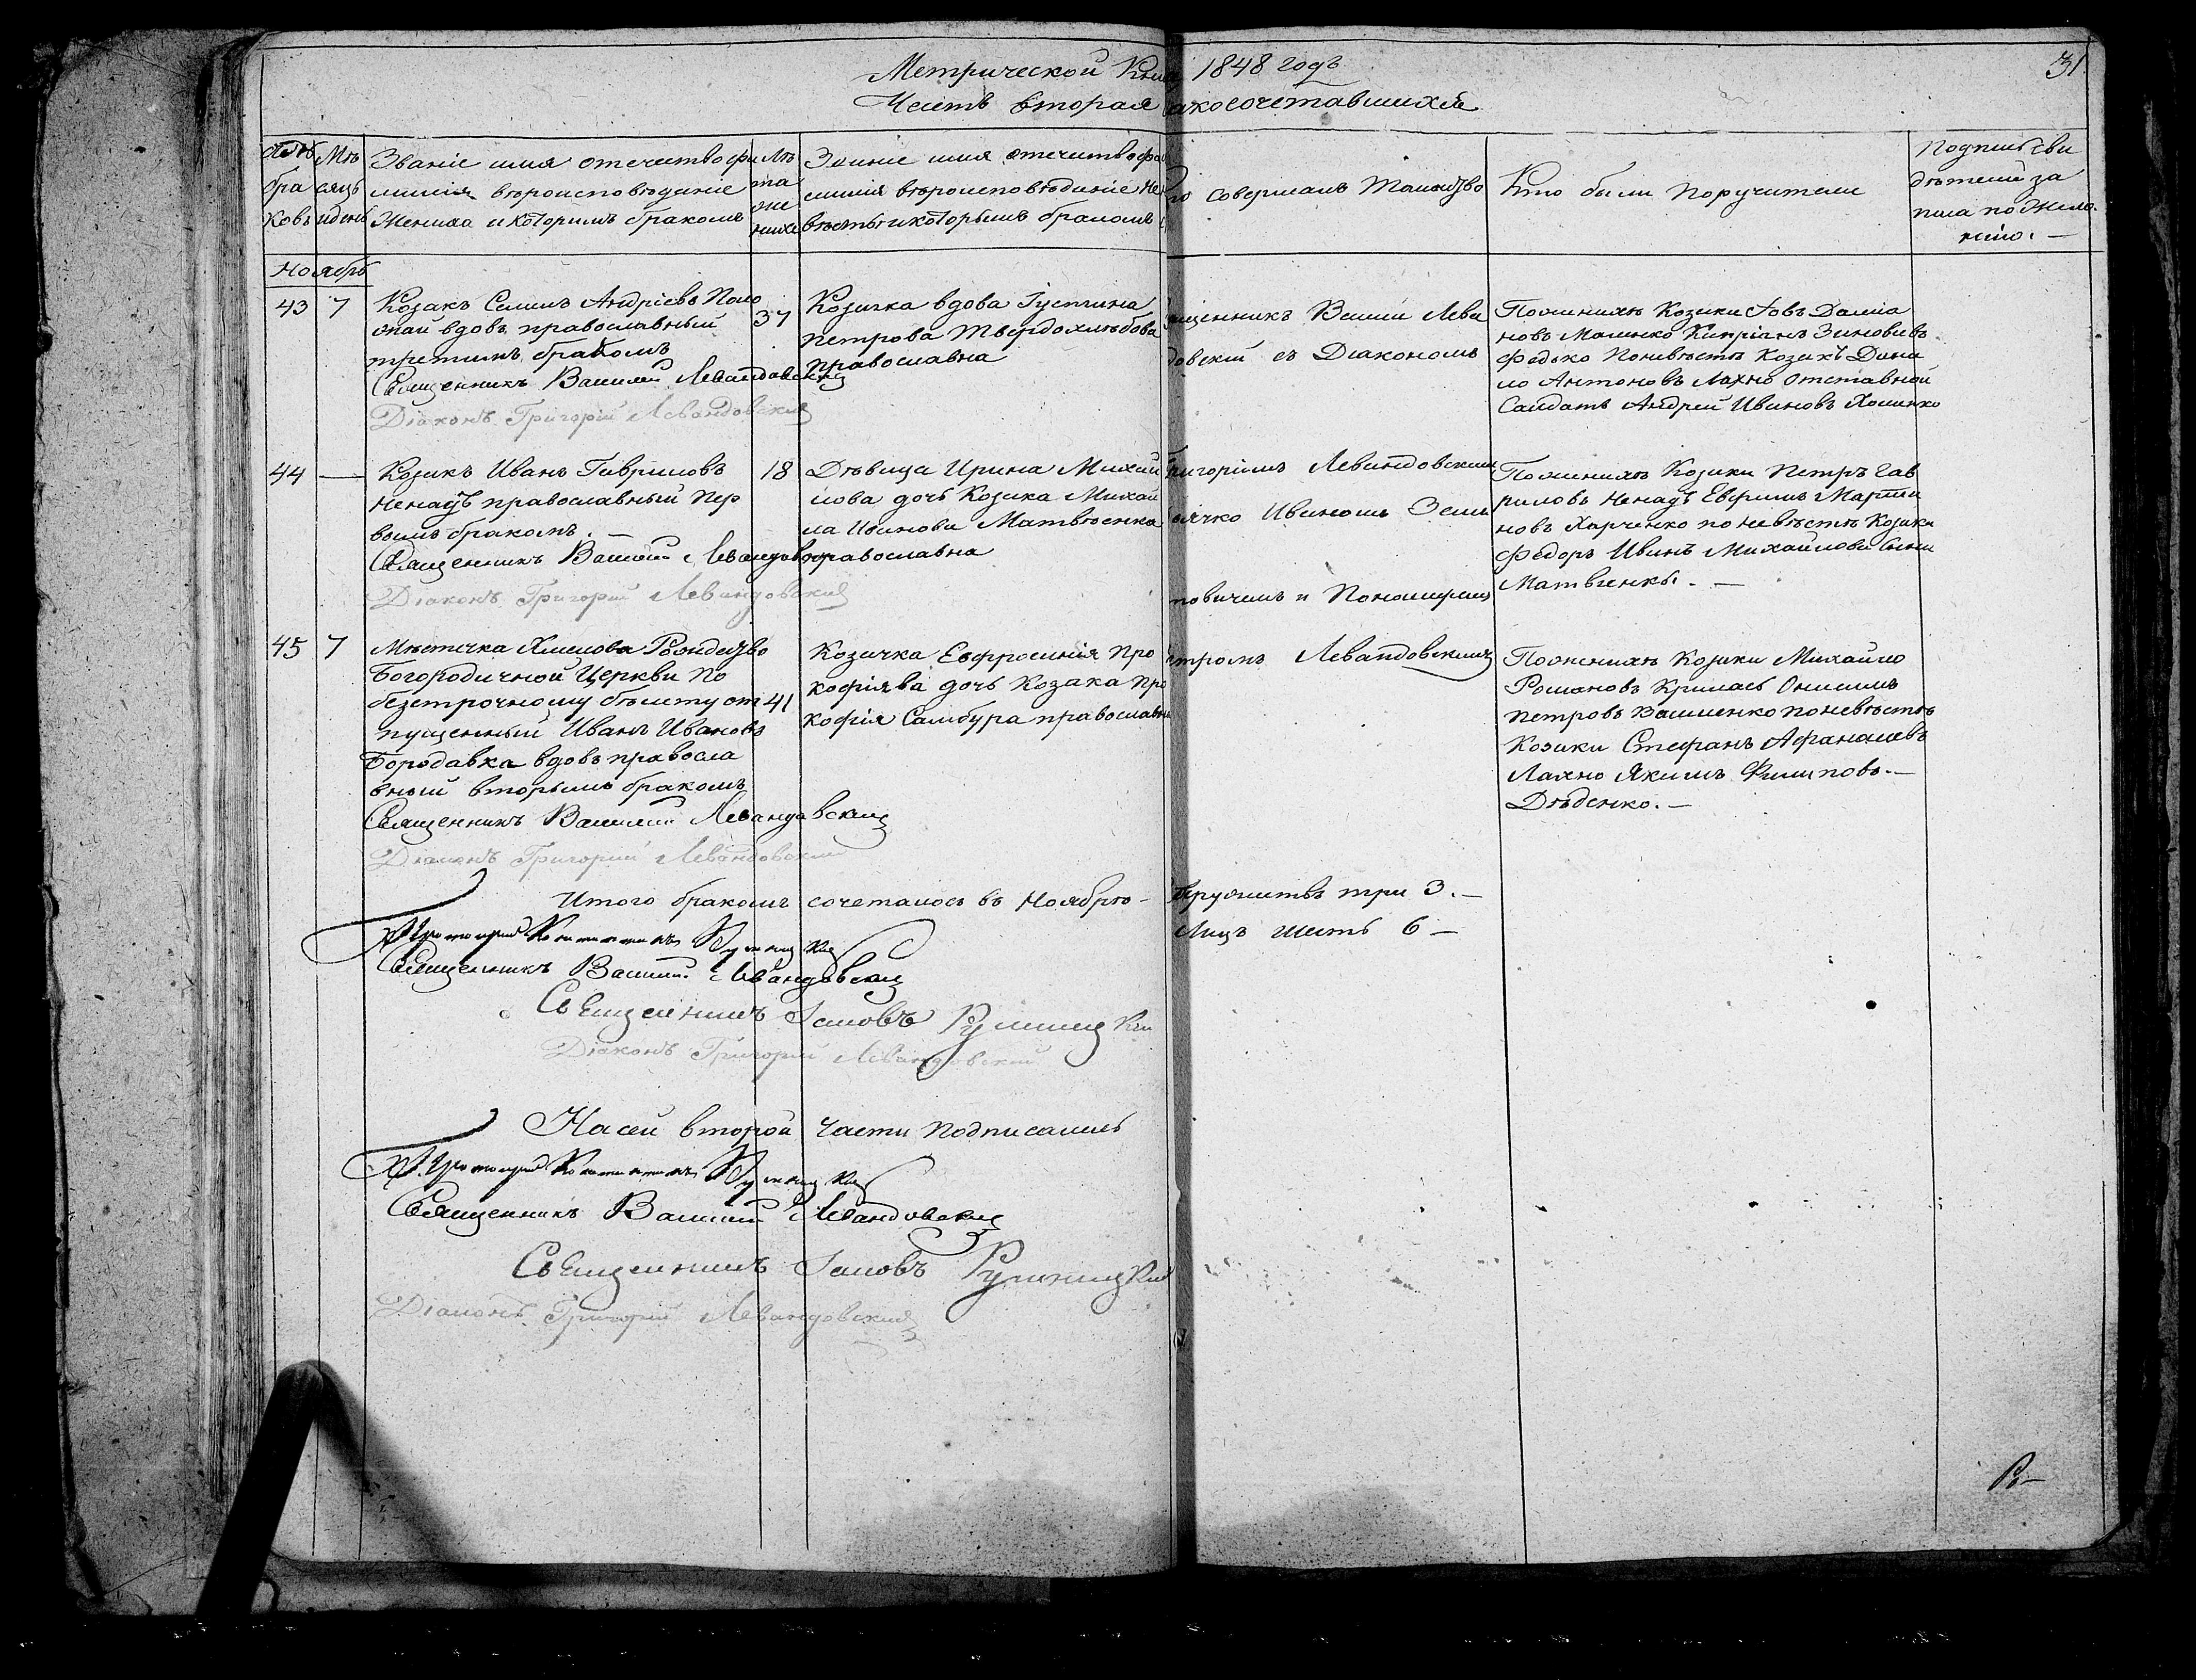 Метрической Книги 1848 годъ
31
Часть вторая акосочетавшихся
бра
ковъ
Мѣ
сяцъ
идень
Званіе имя отечество фа
милія вѣроисповѣданіе
Жениха и которимъ бракомъ
Лѣ
та
же
ниха
Званіе имя отечество фа
милія вѣроисповѣданіе не
вѣсты и которымъ бракомъ
то совершалъ таинство
Кто были поручители
Подпись сви
дѣтелей за
писа по жела
нію. —
Ноябрь
43 7
Козакъ Семенъ Андріевъ
вдовъ православный
третимъ бракомъ
Священникъ Василій Левандовскій
Діаконъ Григорій Левандовскій
37
Козачка вдова Іустина
Петрова Твердохлѣбова
православна
ященникъ Василій Лева
довскій съ Діакономъ
Пожениху Козаки Іовъ Даміа
новъ Малико Кипріанъ Зиновіевъ
Федько Поневѣстѣ Козакъ Дани
ло Антоновъ Лахно отставной
Салдатъ Андрей Ивановъ Хоменко
44 —
Козакъ Иванъ Гавриловъ
Ненадъ православный пер
вымъ бракомъ. —
Священникъ Василій Левандовскій
Діаконъ Григорій Левандовскій
18
Дѣвица Ирина Михай
лова дочь Козака Михай
ла Иванова Матвѣенка
православна
ригоріемъ Левандовскимъ
ячко Иваномъ
повичемъ и Пономаремъ
Пожениху Козаки Петръ Гав
риловъ Ненадъ Евфимъ Марти
новъ Харченко по невѣстѣ Козаки
Федоръ Иванъ Михайлови сыни
Матвѣенкы. —
45 7
Мѣстечка Хмелова Рождество
Богородичной Церкви по
безсрочному билету от
пущенный Иванъ Ивановъ
Бородавка вдовъ правосла
вный вторымъ бракомъ
Священникъ Василій Левандовскій
Діаконъ Григорій Левандовскій
41
Козачка Евфросинія Про
кофіява дочь Козака Про
кофія Самбура православна
етромъ Левандовскимъ
Пожениху Козаки Михайло
Романовъ Онисимъ
Петровъ Василенко поневѣстѣ
Козаки Стефанъ Афанасіевъ
Лахно Якимъ Филиповъ. —
Дѣденко. —
Итого бракомъ сочеталось въ Ноябрѣ — супружитвъ три 3. —
Лицъ шесть 6 —
Протоіерей Константинъ
Священникъ Василій Левандовскій
Священникъ Іаковъ
Діаконъ Григорій Левандовскій
Насей второй части подписались
Протоіерей Константинъ
Священникъ Василій Левандовскій
Священникъ Іаковъ
Діаконъ Григорій Левандовскій